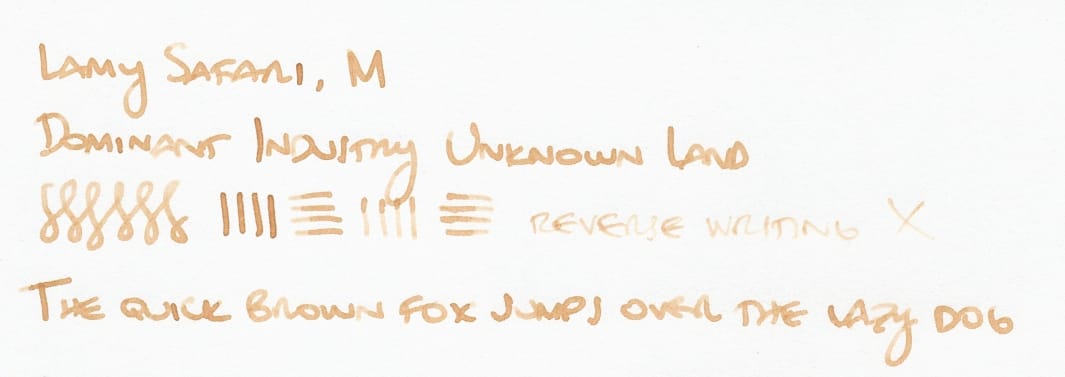 Lamy Safari, M
Dominant Industry Unknown Land
reverse writing X
The quick brown fox jumps over the lazy dog